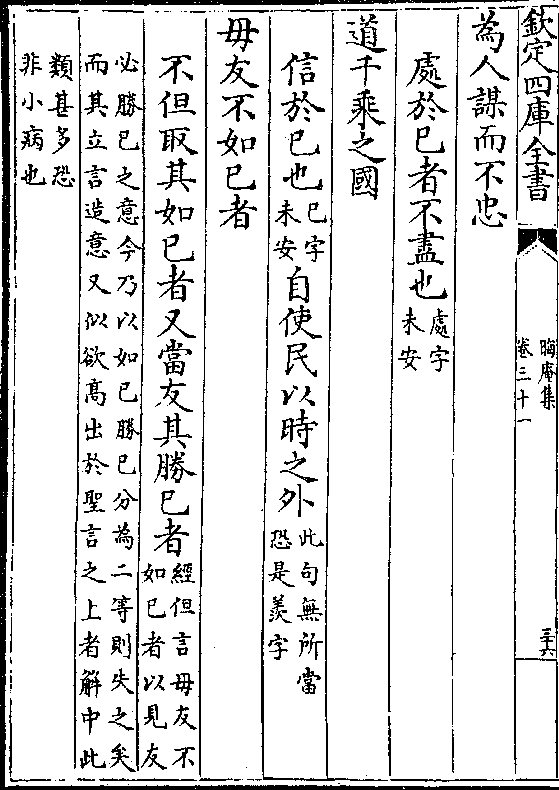 欽定四庫全書
晦庵集
卷三十一
為人謀而不忠
處於已者不盡也處字
未安
道千乘之國
信於已也已字
未安自使民以時之外此句無所當
恐是羡字
毋友不如已者
不但取其如已者又當友其勝已者經但言毋友不
如已者以見友
必勝已之意今乃以如已勝已分為二等則失之矣
而其立言造意又似欲高出於聖言之上者解中此
類甚多恐
非小病也